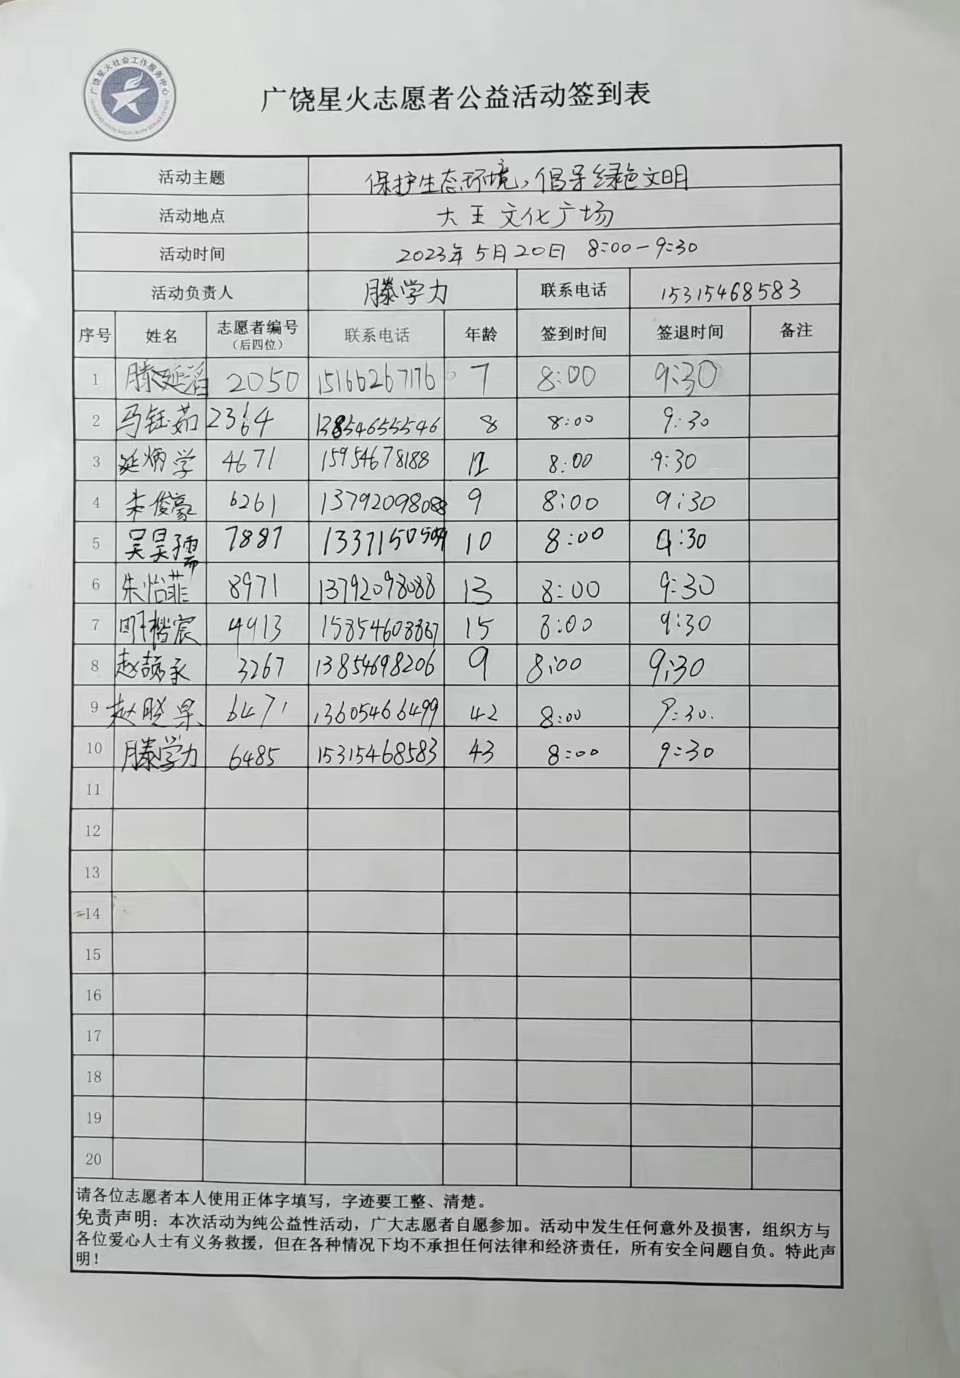 广饶星火社会工作服务中心
广饶星火志愿者公益活动签到表
活动主题 保护生态环境，倡导绿色文明
活动地点 大王文化广场
活动时间 2023年5月20日 8:00-9:30
活动负责人 滕学力 联系电话 15315468583
序号 姓名 志愿者编号（后四位） 联系电话 年龄 签到时间 签退时间 备注
1 滕延滔 2050 15166267176 7 8:00 9:30
2 马钰茹 2364 13854655546 8 8:00 9:30
3 延炳学 4671 15954678188 12 8:00 9:30
4 朱俊豪 6261 13792098088 9 8:00 9:30
5 吴昊孺 7887 1337150509 10 8:00 9:30
6 朱怡菲 8971 13792098088 13 8:00 9:30
7 楷宸 4913 15854608887 15 8:00 9:30
8 赵 承 3267 13854698206 9 8:00 9:30
9 赵晓果 6471 13605466499 42 8:00 9:30.
10 滕学力 6485 15315468583 43 8:00 9:30
11
12
13
14
15
16
17
18
19
20
请各位志愿者本人使用正体字填写，字迹要工整、清楚。
免责声明：本次活动为纯公益性活动，广大志愿者自愿参加。活动中发生任何意外及损害，组织方与
各位爱心人士有义务救援，但在各种情况下均不承担任何法律和经济责任，所有安全问题自负。特此声
明！